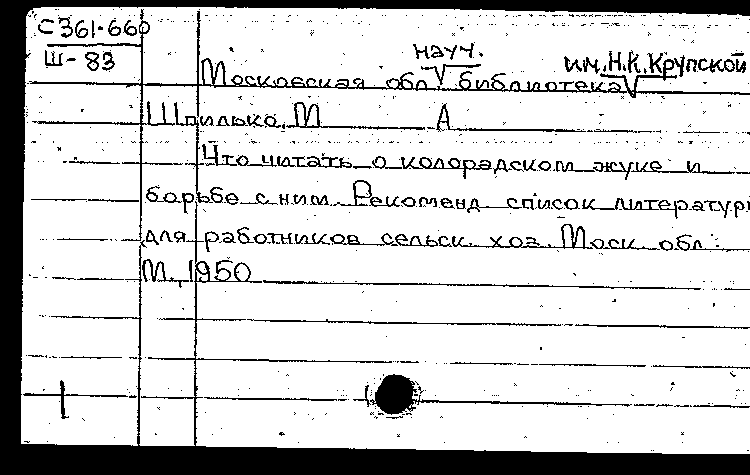 С 361.660
Ш-83
Московская обл. науч. библиотека им. Н.К. Крупской
Шпилько, М А
Что читать о колорадском жуке и
борьбе с ним. Рекоменд. список литературы
для работников сельск. хоз. Моск. обл.
М., 1950